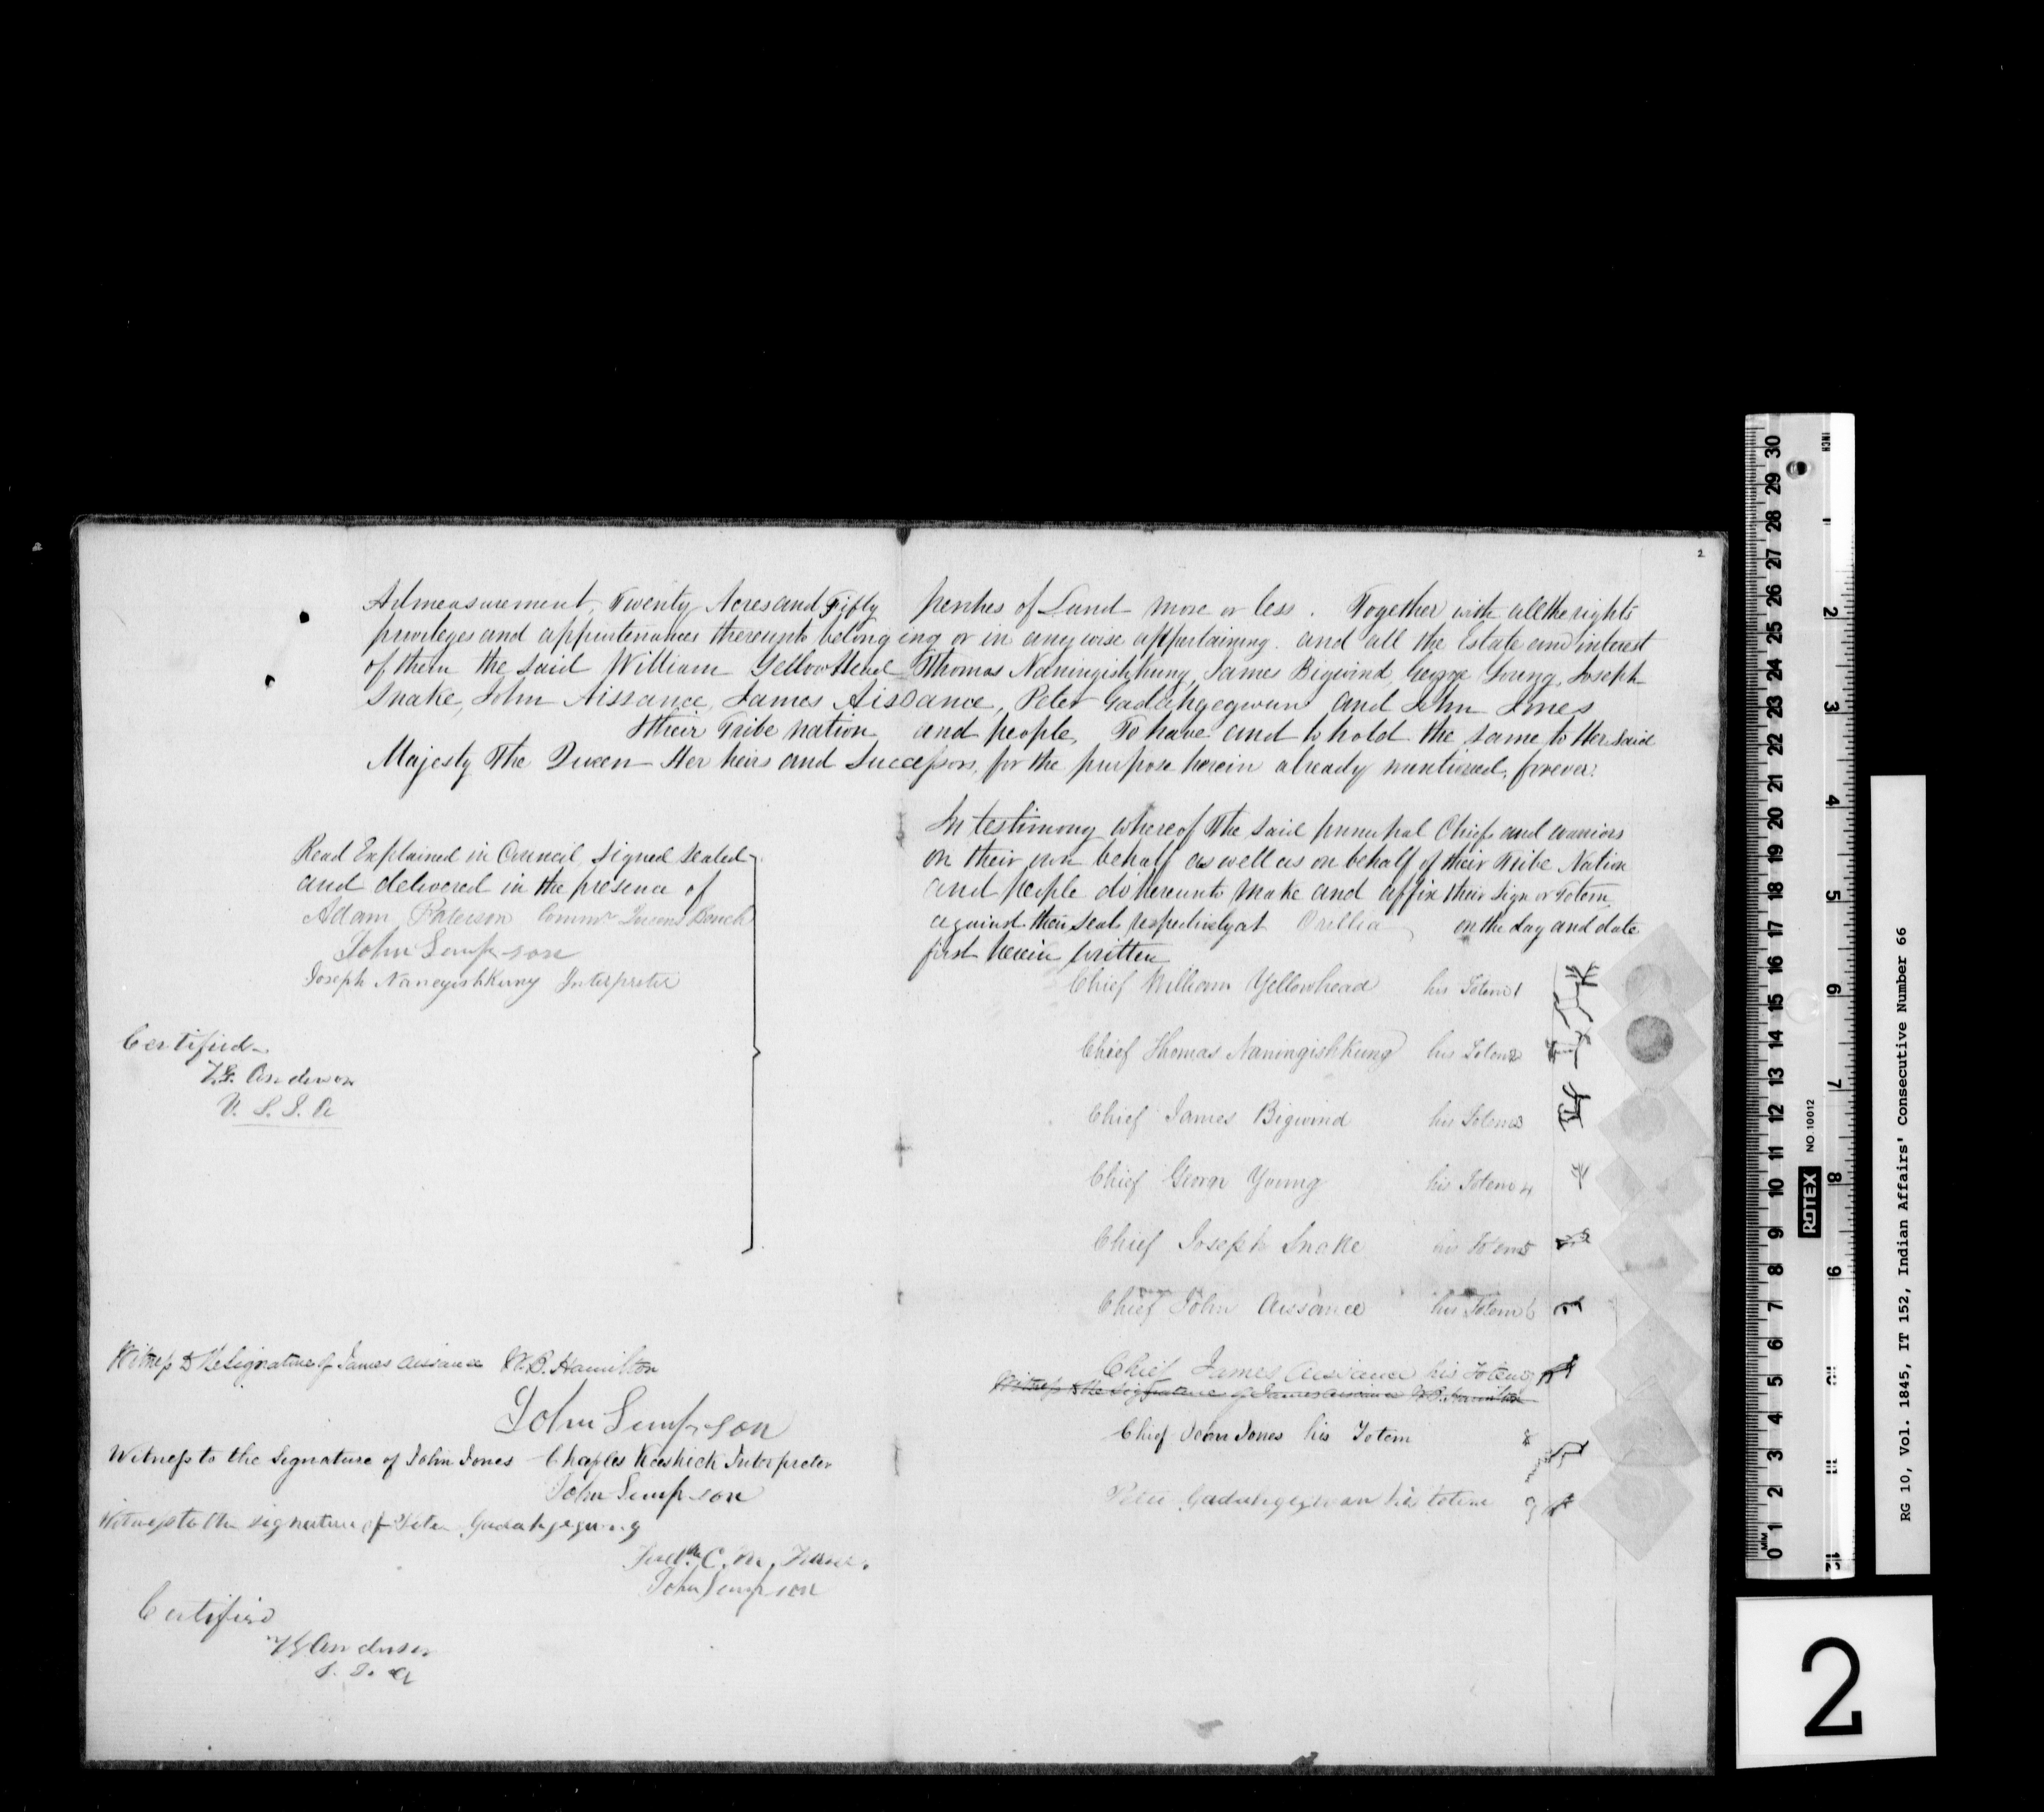 2
Admeasurement, Twenty Acres and Fifty perches of Land more or less. Together with all the rights
privileges and appurtenances thereunto belonging or in any wise appertaining. and all the Estate and interest
of them the said William Yellowhead Thomas Naningishkung, James Bigwind, George Young, Joseph
Snake, John Aissance, James Aissance, Peter Gadahgegwun and John Jones
their Tribe nation and people, To have and to hold the same to Her said
Majesty The Queen Her heirs and Successors, for the purpose herein already mentioned, forever.
In testimony whereof the said principal Chiefs and warriors
on their own behalf as well as on behalf of their Tribe Nation
and people do hereunto make and affix their Sign or Totem
against their seals respectively at Orillia on the day and date
first herein written
Read Explained in Council, signed sealed
and delivered in the presence of
Adam Paterson Commr Queens Bench
John Simpson
Joseph Naneyishkung Interpreter
Certified
T.G. Anderson
V. S. I. A
Chief William Yellowhead his Totem 1
Chief Thomas Naningishkung his Totem 2
Chief James Bigwind his Totem 3
Chief George Young his Totem 4
Chief Joseph Snake his Totem 5
Chief John Aissance his Totem 6
Chief James Aissance his Totem 7
Witness to the Signature of James Aissance W.B. Hamilton
Chief John Jones his Totem 8
Peter Gadahgegwun his totem 9
Witness to the Signature of James Aissance W.B. Hamilton
John Simpson
Witness to the Signature of John Jones Charles Keeshick Interpreter
John Simpson
Witness to the signature of Peter Gadahgegung
Fredk C. M.
John Simpson
Certified
T G Anderson
S. I. A
INCH
ROTEX NO.10012
RG 10, Vol. 1845, IT 152, Indian Affairs' Consecutive Number 66
2